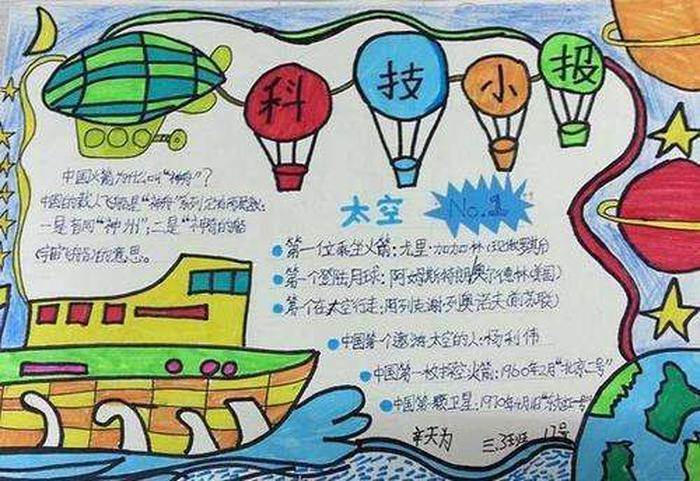 科技小报
中国火箭为什么叫“神舟”？
中国的载人飞船是“神舟”系列,它有两层意:
一是有同“神州”;二是“神奇的船
(宇宙飞船)的意思。
太空 No.1
第一位乘坐火箭:尤里·加加林(
第一个登陆月球:阿姆斯特朗奥尔德林(美国)
第一个在太空行走:阿列克谢·列奥诺夫(前苏联)
中国第一个遨游太空的人:杨利伟
中国第一枚探空火箭:1960年2月“北京二号”
中国第一颗卫星:1970年4月
三.3班 17号